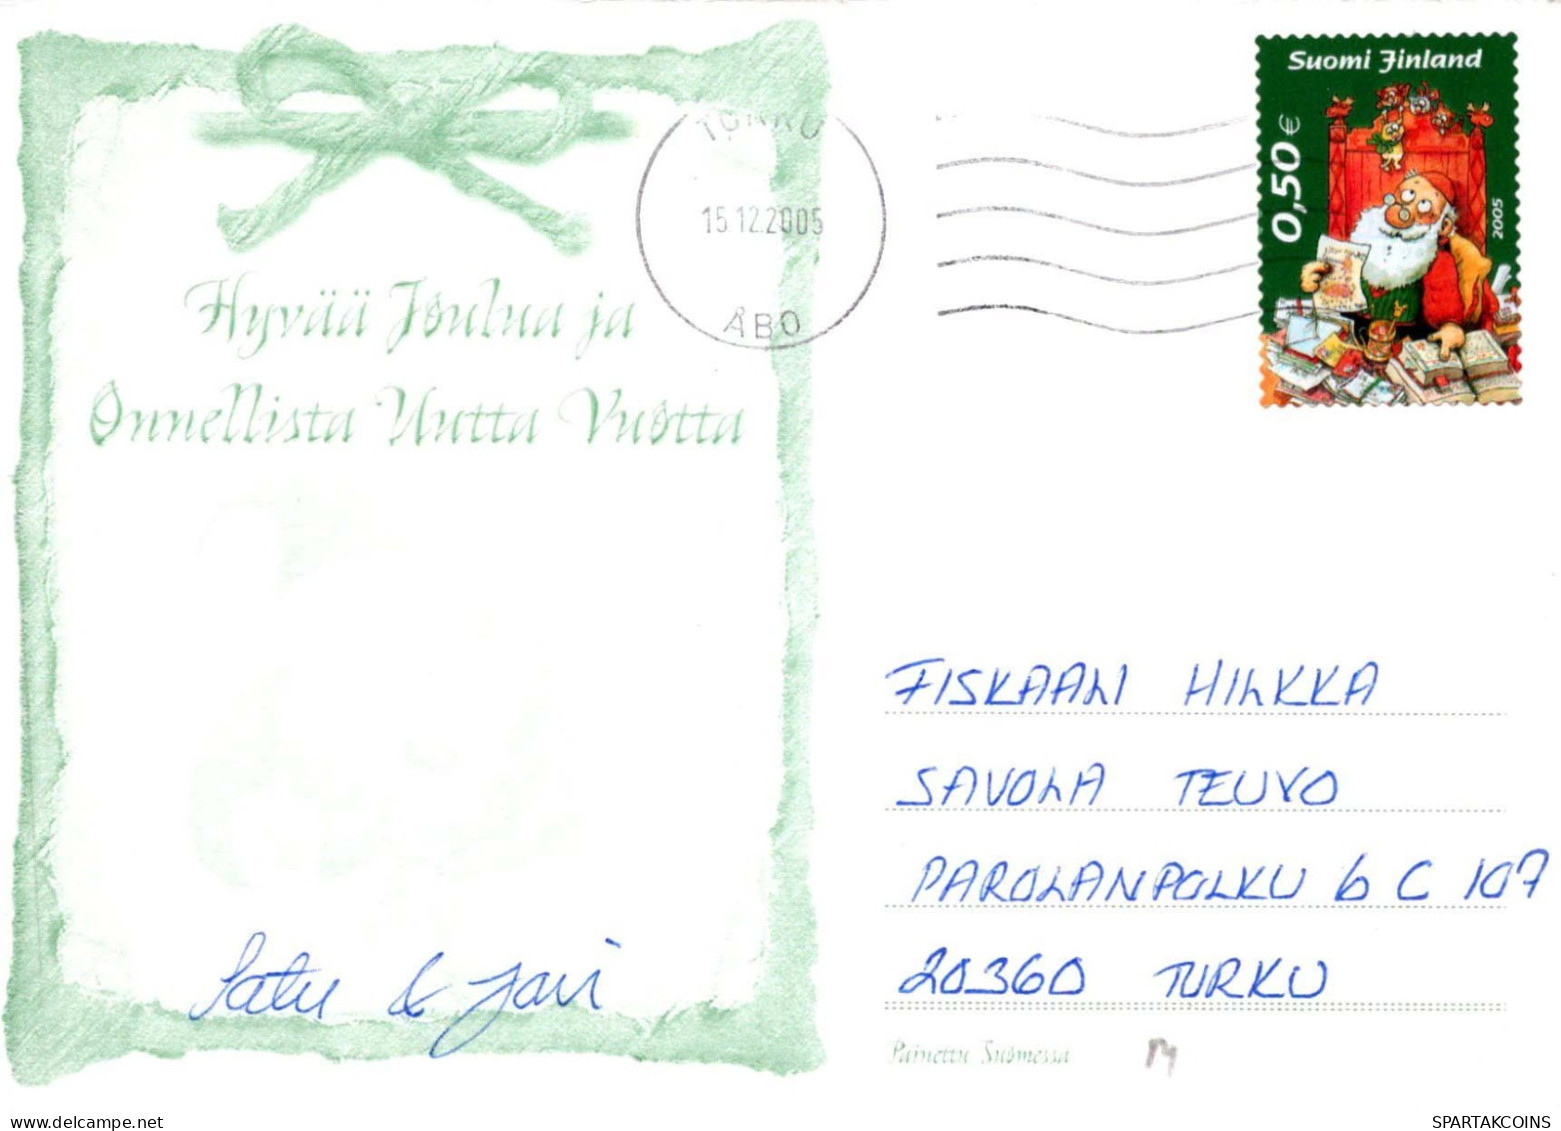 Suomi Finland
0,50 €
2005
TURKU
15.12.2005
ÅBO
Hyvää Joulua ja
Onnellista Uutta Vuotta
FISKAALI HILKKA
SAVOLA TEUVO
PAROLANPOLKU 6 C 107
20360 TURKU
Satu & Jari
Painettu Suomessa
www.delcampe.net
SPARTAKCOINS